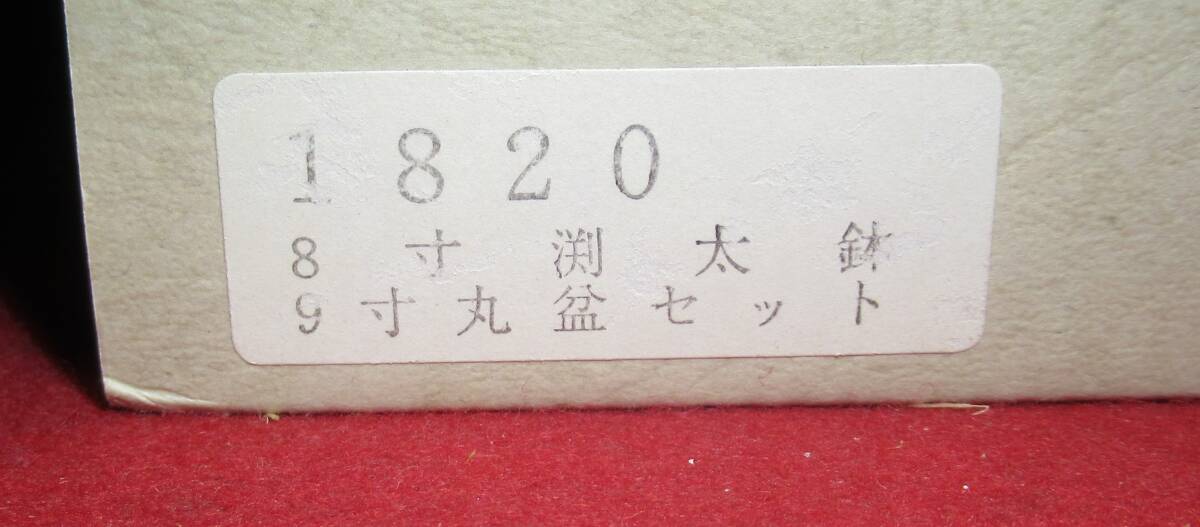 1820
8寸渕太鉢
9寸丸盆セット